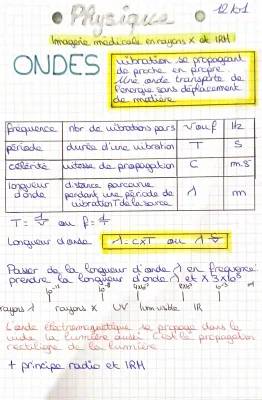 12/61
Physique
Imagerie médicale en rayons X et IRH
ONDES
vibration se propageant
de proche en proche.
Une onde transporte de
l'energie sans déplacement
de matière
frequence nbr de vibrations par s ν ou f Hz
période durée d'une vibration T S
célérité vitesse de propagation C m.s
longueur d'onde distance parcourue pendant une période de vibration T de la source λ m
T = 1/ν ou f = 1/T
Longueur d'onde λ = C×T ou λ
Passer de la longueur d'onde λ en frequence:
prendre la longueur d'onde λ et × 3×10⁸
rayons λ rayons X UV lum visible IR
L'onde électromagnétique se propage dans le
vide la lumière aussi. C'est la propagation
rectiligne de la lumière
+ principe radio et IRH